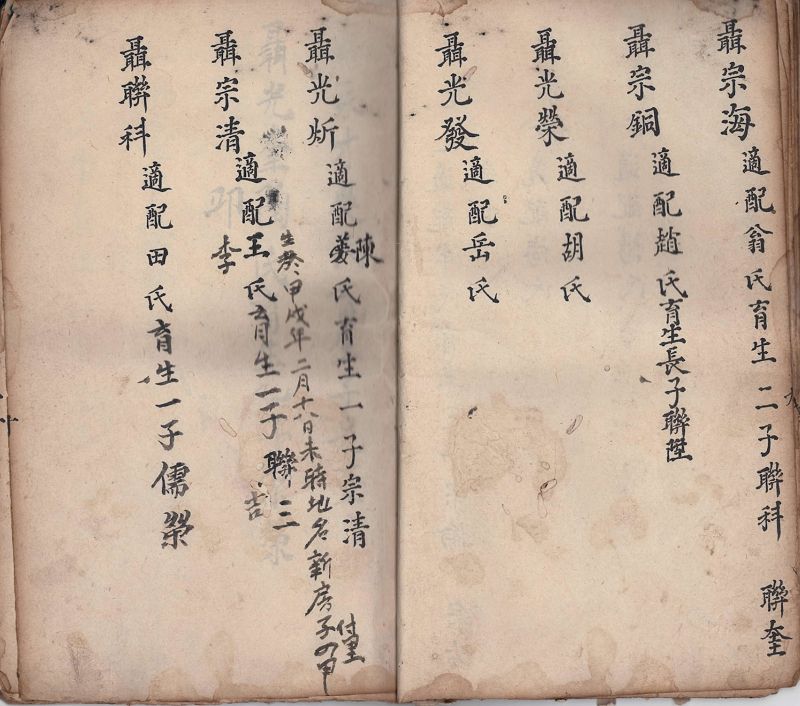 聶宗海 適配翁氏育生二子聯科 聯奎
聶宗銅 適配趙氏育生長子聯陞
聶光榮 適配胡氏
聶光發 適配岳氏
聶光炘 適配陳姜氏育生一子宗清
生癸甲戌年二月十八日未時地名新房子
聶宗清 適配王氏育生一子聯三
李
吉
聶聯科 適配田氏育生一子儒榮